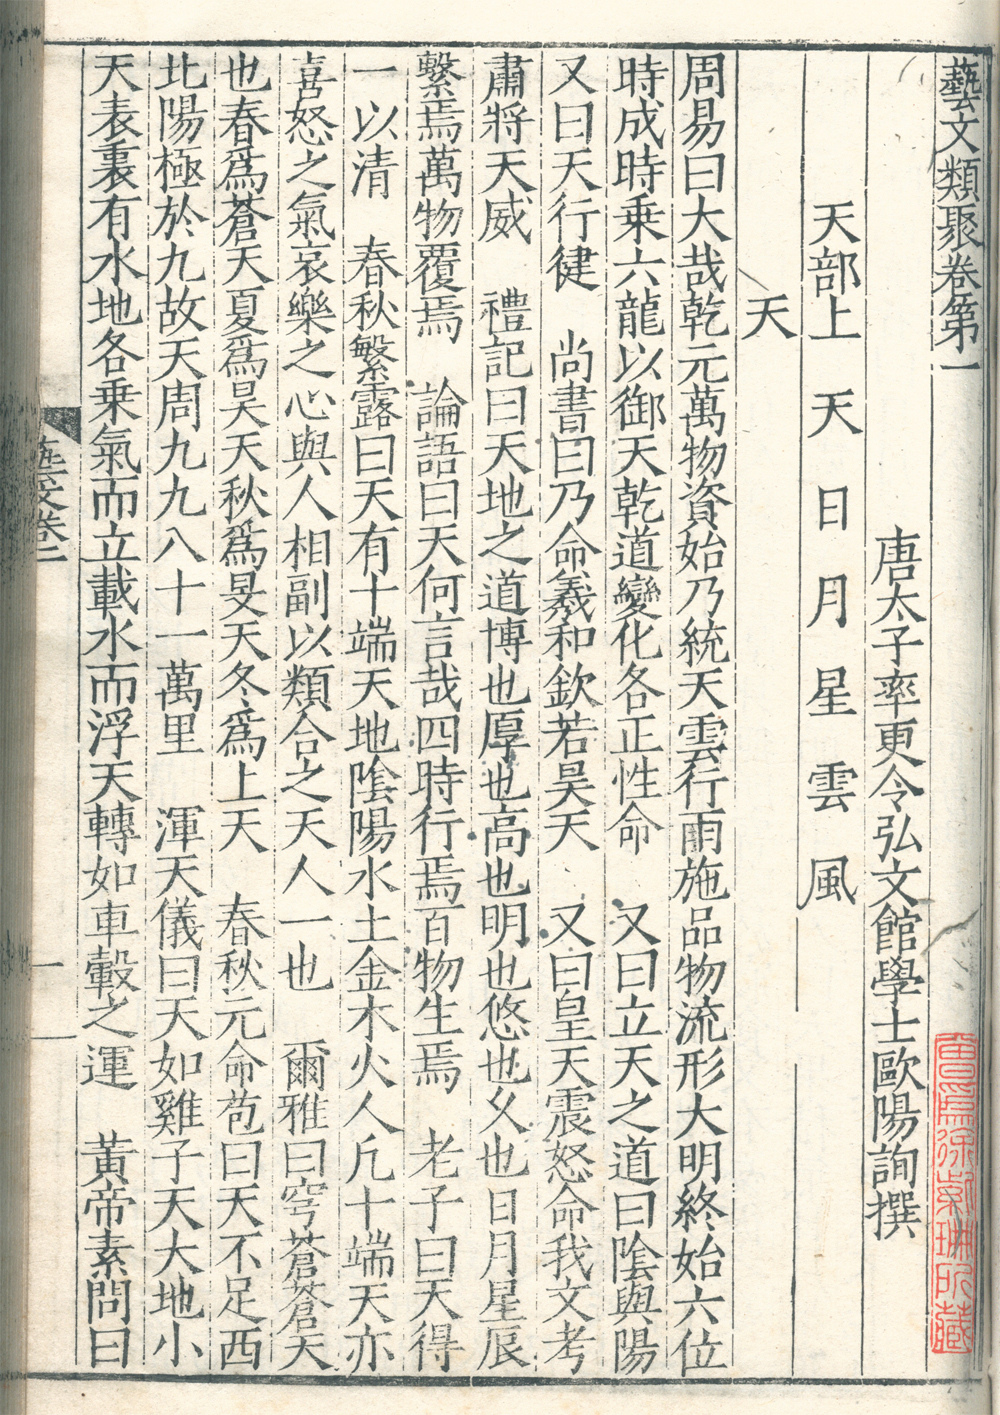 藝文類聚卷第一
唐太子率更令弘文館學士歐陽詢撰
天部上 天 日 月 星 雲 風
天
周易曰大哉乾元萬物資始乃統天雲行雨施品物流形大明終始六位
時成時乗六龍以御天乾道變化各正性命 又曰立天之道曰陰與陽
又曰天行健 尚書曰乃命羲和欽若昊天 又曰皇天震怒命我文考
肅將天威 禮記曰天地之道博也厚也高也明也悠也久也日月星辰
繫焉萬物覆焉 論語曰天何言哉四時行焉百物生焉 老子曰天得
一以清 春秋繁露曰天有十端天地陰陽水土金木火人凢十端天亦
喜怒之氣哀樂之心與人相副以類合之天人一也 爾雅曰穹蒼蒼天
也春爲蒼天夏爲昊天秋爲旻天冬爲上天 春秋元命苞曰天不足西
北陽極於九故天周九九八十一萬里 渾天儀曰天如雞子天大地小
天表裏有水地各乗氣而立載水而浮天轉如車轂之運 黃帝素問曰
藝文卷一
一